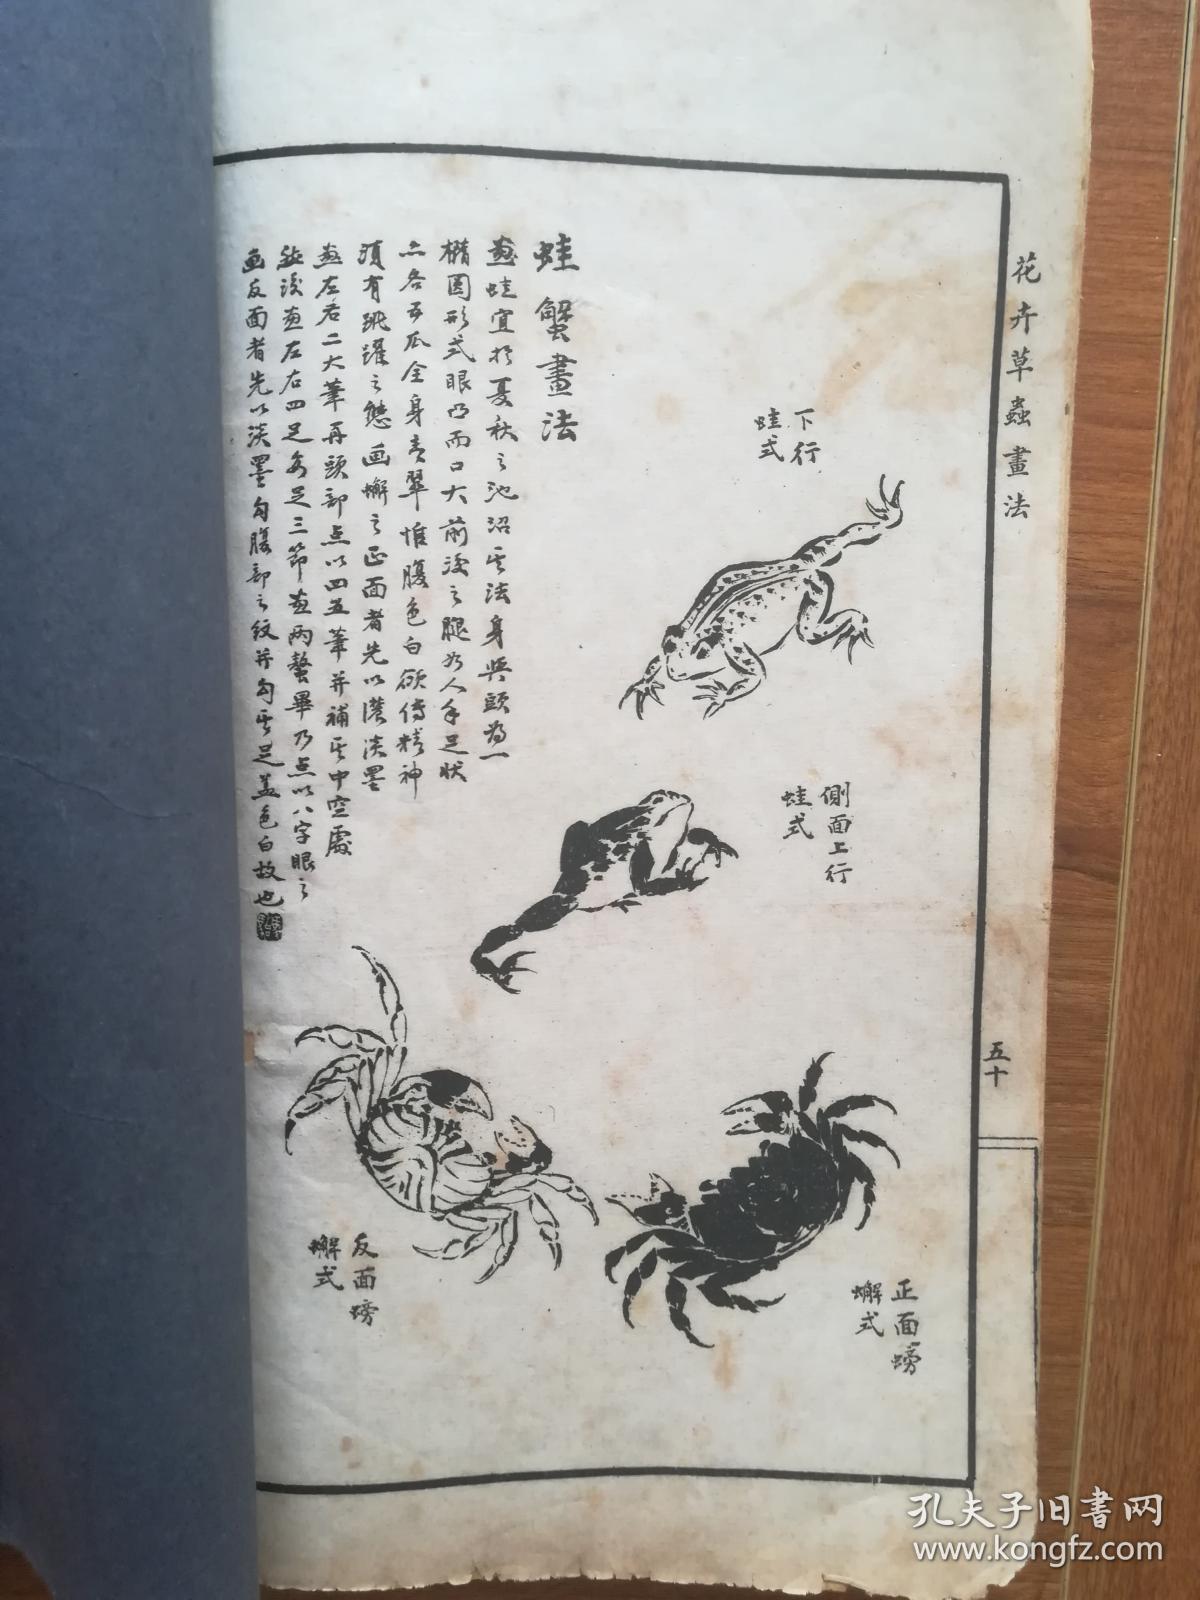 花卉草蟲畫法
五十
下行
蛙式
側面上行
蛙式
正面螃
蠏式
反面螃
蠏式
蛙蟹畫法
畫蛙宜於夏秋之池沼其法身與頭為一
橢圓形式眼凸而口大前後之腿如人手足狀
亦各五爪全身青翠惟腹色白欲傳精神
須有跳躍之態画蠏之正面者先以濃淡墨
畫左右二大筆再頭部点以四五筆并補其中空處
然後畫左右四足每足三節畫兩螯畢乃点以八字眼之
画反面者先以淡墨勾腹部之紋并勾其足盖色白故也
孔夫子旧书网
www.kongfz.com